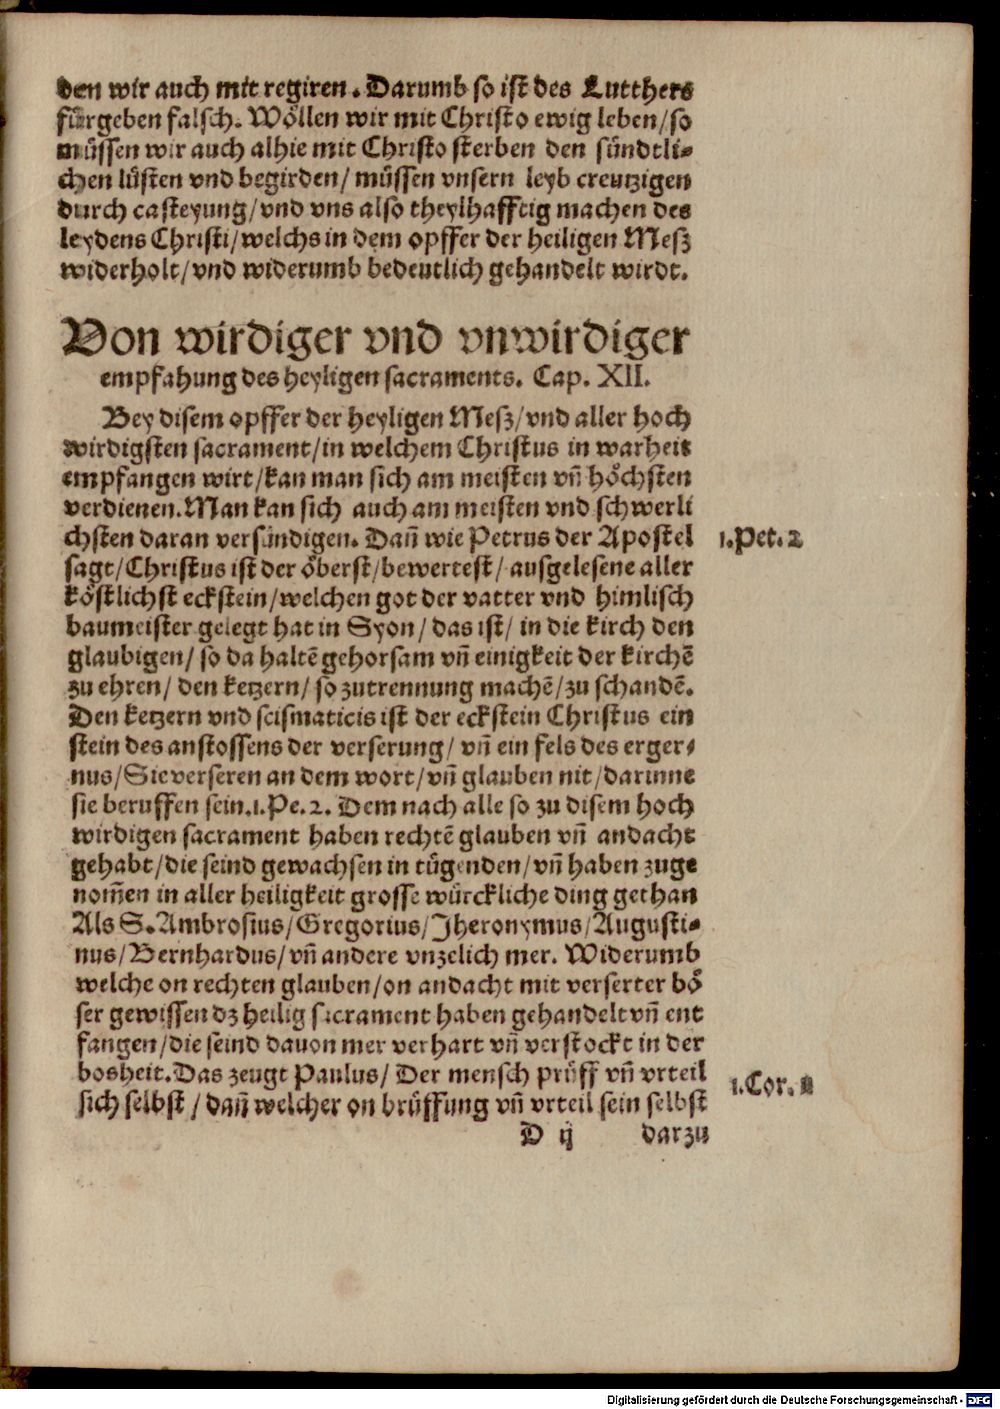 den wir auch mit regiren. Darumb so ist des Lutthers
fürgeben falsch. Wöllen wir mit Christo ewig leben/so
müssen wir auch alhie mit Christo sterben den sündtli-
chen lüsten vnd begirden/ müssen vnsern leyb creutzigen
durch casteyung/vnd vns also theylhafftig machen des
leydens Christi/welchs in dem opffer der heiligen Meß
widerholt/vnd widerumb bedeutlich gehandelt wirdt.
Von wirdiger vnd vnwirdiger
empfahung des heyligen sacraments. Cap. XII.
Bey disem opffer der heyligen Meß/vnd aller hoch
wirdigsten sacrament/in welchem Christus in warheit
empfangen wirt/kan man sich am meisten vñ höchsten
verdienen. Man kan sich auch am meisten vnd schwerli
chsten daran versündigen. Dañ wie Petrus der Apostel
1.Pet.2
sagt/Christus ist der öberst/bewertest/ausgelesene aller
köstlichst eckstein/welchen got der vatter vnd himlisch
baumeister gelegt hat in Syon/ das ist/ in die kirch den
glaubigen/ so da haltē gehorsam vñ einigkeit der kirchē
zu ehren/ den ketzern/ so zutrennung machē/zu schandē.
Den ketzern vnd scismaticis ist der eckstein Christus ein
stein des anstossens der verserung/ vñ ein fels des erger-
nus/Sie verseren an dem wort/vñ glauben nit/darinne
sie beruffen sein.1.Pe.2. Dem nach alle so zu disem hoch
wirdigen sacrament haben rechtē glauben vñ andacht
gehabt/die seind gewachsen in tügenden/vñ haben zuge
nom̃en in aller heiligkeit grosse würckliche ding gethan
Als S. Ambrosius/Gregorius/Jheronymus/Augusti-
nus/Bernhardus/vñ andere vnzelich mer. Widerumb
welche on rechten glauben/on andacht mit verserter bö
ser gewissen dz heilig sacrament haben gehandelt vñ ent
fangen/die seind dauon mer verhart vñ verstockt in der
bosheit. Das zeugt Paulus/ Der mensch prüff vñ vrteil
1.Cor.
sich selbst/dañ welcher on brüffung vñ vrteil sein selbst
D ij darzu
Digitalisierung gefördert durch die Deutsche Forschungsgemeinschaft - DFG